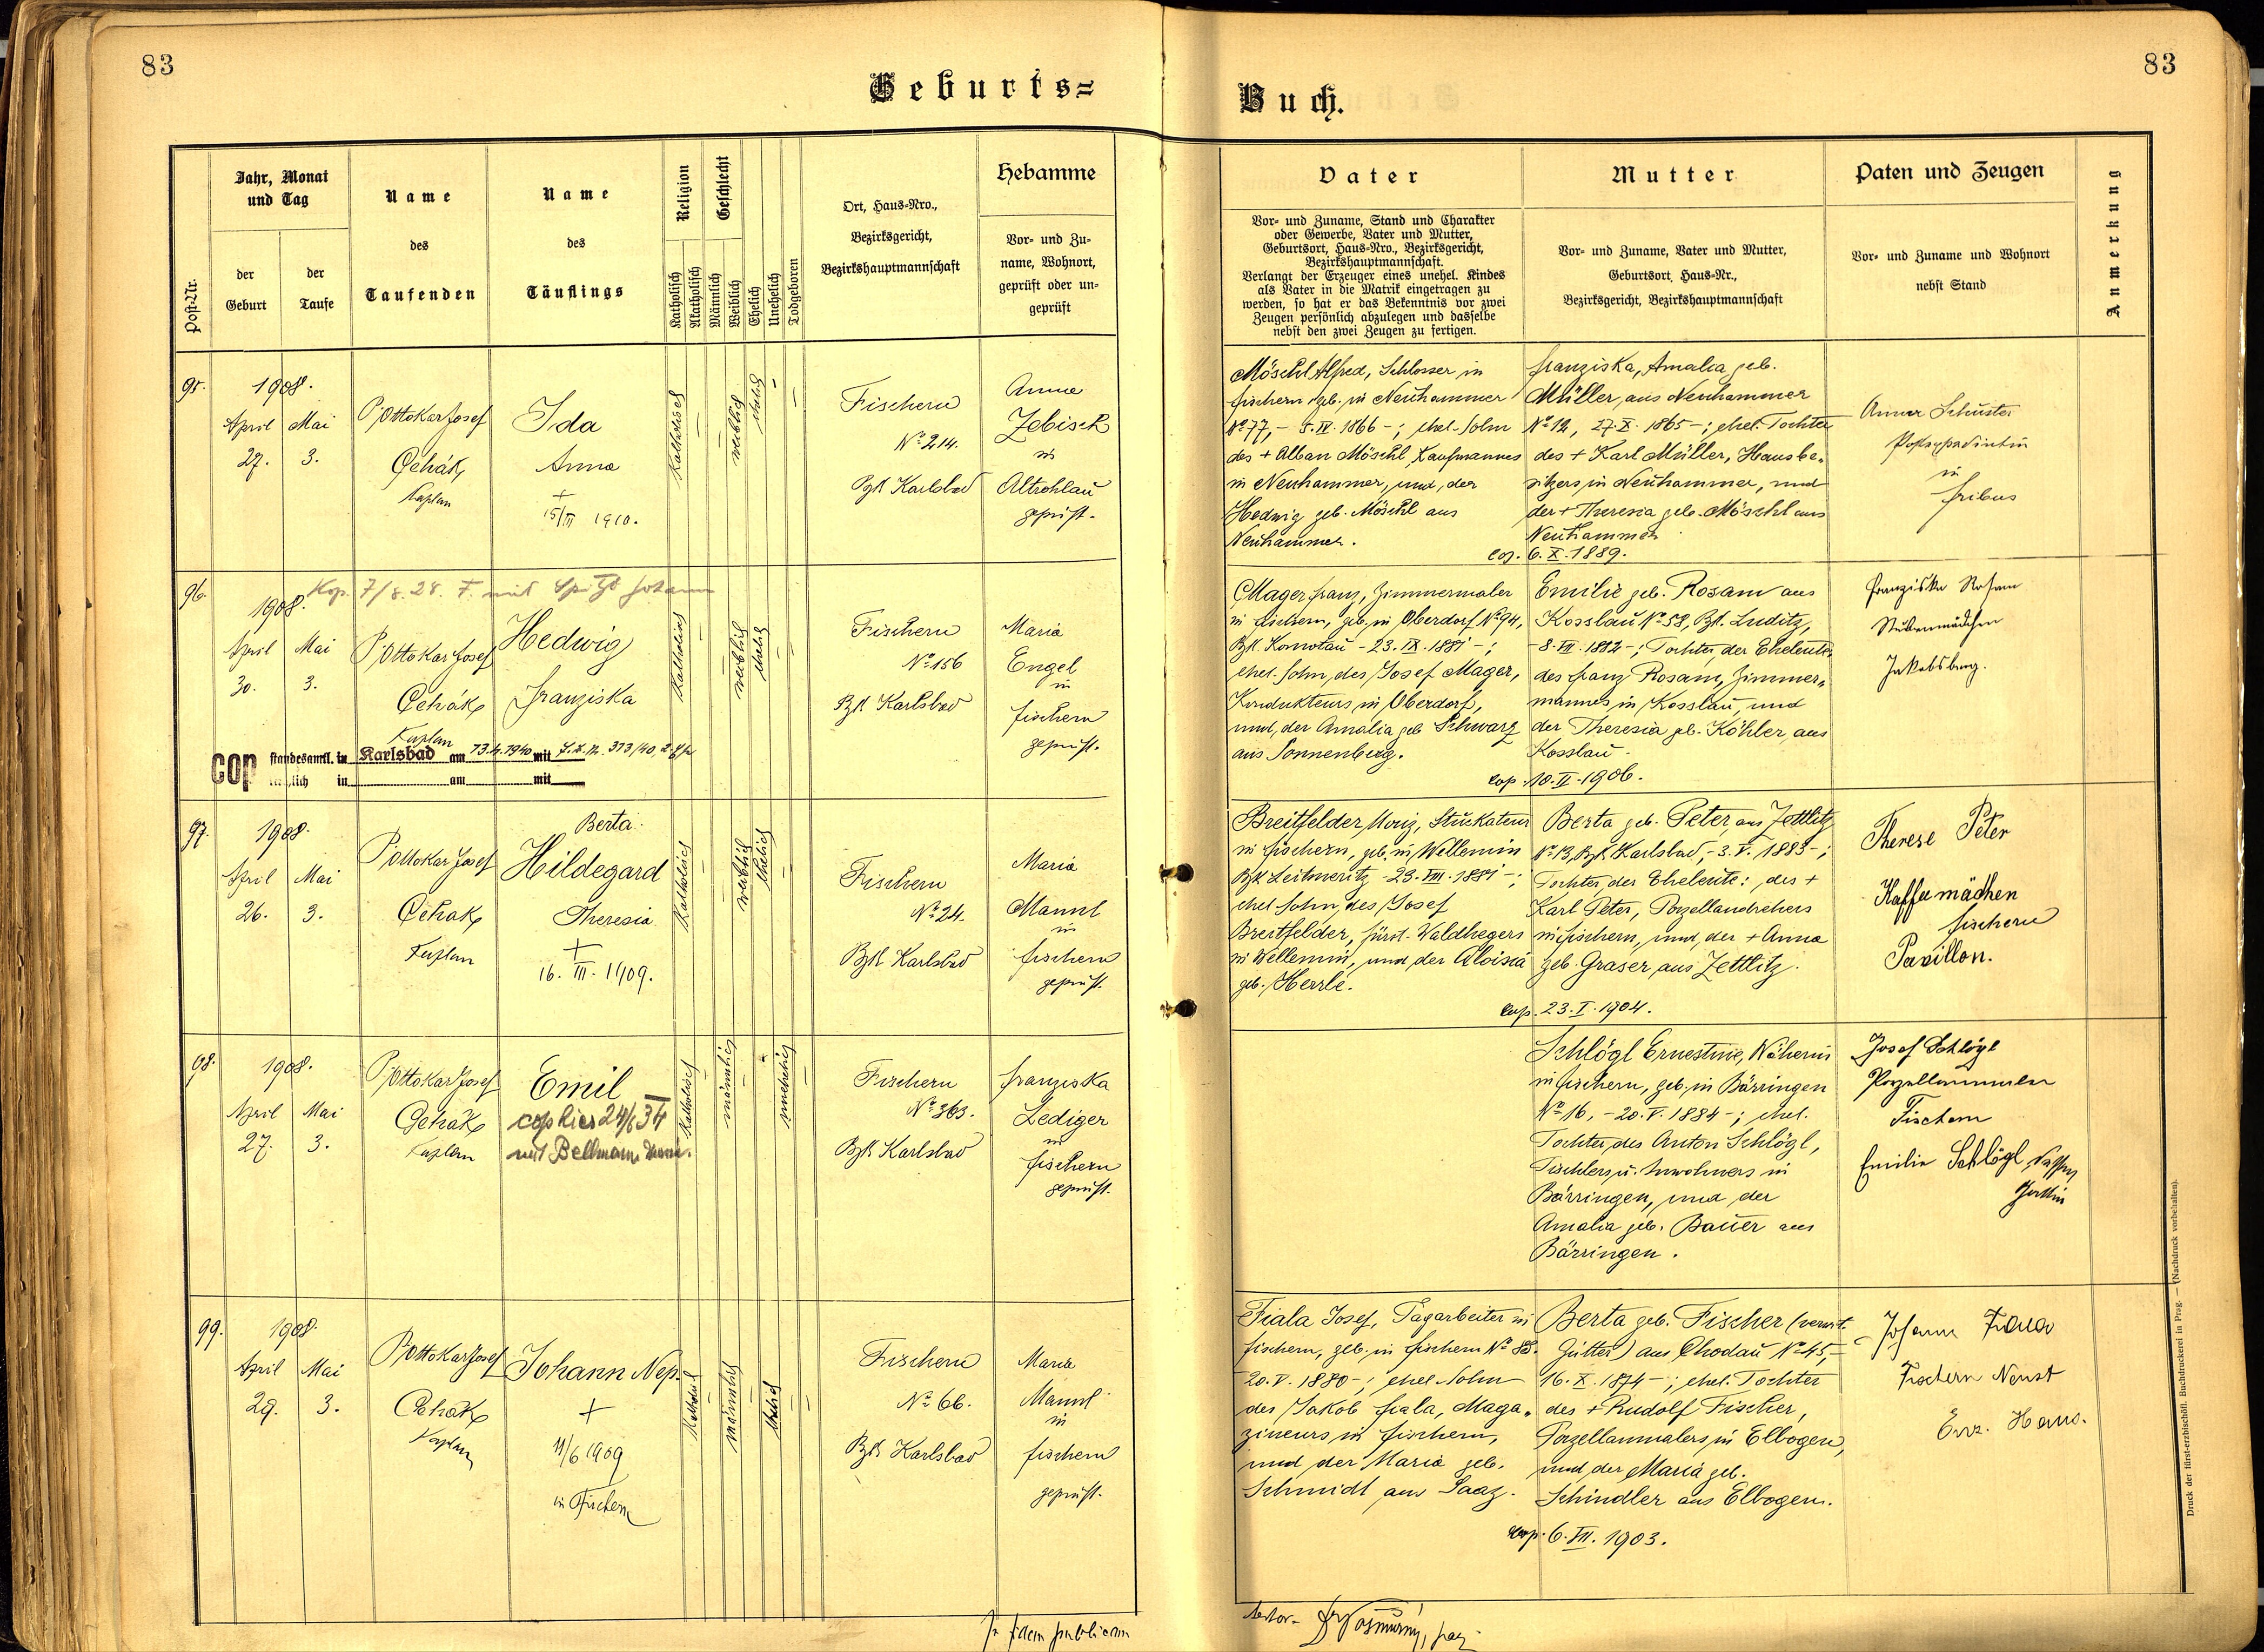 83
83
Geburts=
Buch.
Post-Nr.
Jahr, Monat
und Tag
der
Geburt
der
Taufe
Name
des
Taufenden
Name
des
Täuflings
Religion
Katholisch
Akatholisch
Geschlecht
Männlich
Weiblich
Ehelich
Unehelich
Todgeboren
Ort, Haus-Nro.,
Bezirksgericht,
Bezirkshauptmannschaft
Hebamme
Vor- und Zu-
name, Wohnort,
geprüft oder un-
geprüft
Vater
Vor- und Zuname, Stand und Charakter
oder Gewerbe, Vater und Mutter,
Geburtsort, Haus-Nro., Bezirksgericht,
Bezirkshauptmannschaft.
Verlangt der Erzeuger eines unehel. Kindes
als Vater in die Matrik eingetragen zu
werden, so hat er das Bekenntnis vor zwei
Zeugen persönlich abzulegen und dasselbe
nebst den zwei Zeugen zu fertigen.
Mutter
Vor- und Zuname, Vater und Mutter,
Geburtsort, Haus-Nr.,
Bezirksgericht, Bezirkshauptmannschaft
Paten und Zeugen
Vor- und Zuname und Wohnort
nebst Stand
Anmerkung
95.
1908.
April
27.
Mai
3.
P. Ottokar Josef
Čehák
Kaplan
Ida
Anna
+
15/III 1910.
Katholisch
weiblich
ehelich
Fischern
No 214.
Bzk Karlsbad
Anna
Zebisch
in
Altrohlau
geprüft.
Möschl Alfred, Schlosser in
Fischern, geb. in Neuhammer
No 77, - 5. IV. 1866 -; ehel. Sohn
des + Alban Möschl, Kaufmannes
in Neuhammer, und der
Hedwig geb. Möschl aus
Neuhammer.
Franziska, Amalia geb.
Müller, aus Neuhammer
No 12, 27. X. 1865 -; ehel. Tochter
des + Karl Müller, Hausbe-
sitzers, in Neuhammer, und
der + Theresia geb. Möschl aus
Neuhammer
cop. 6. X. 1889.
Anna Schuster
in
Fribus
96.
Kop. 7/8. 28. F. mit Johann
1908.
April
30.
Mai
3.
P. Ottokar Josef
Čehák
Kaplan
Hedwig
Franziska
Katholisch
weiblich
ehelich
Fischern
No 156
Bzk Karlsbad
Maria
Engel
in
Fischern
geprüft.
cop standesamtl. in Karlsbad am 13.4.1940 mit 313/40,
lich in am mit
Mager Franz, Zimmermaler
in Fischern, geb. in Oberdorf No 94,
Bzk. Komotau - 23. IX. 1881 -;
ehel. Sohn, des Josef Mager,
Kondukteurs, in Oberdorf,
und, der Amalia geb. Schwarz
aus Sonnenberg.
Emilie geb. Rosam aus
Kosslau No 53, Bzk. Luditz,
- 8. VII. 1882 -; Tochter der Eheleute:
des Franz Rosam, Zimmer-
mannes in Kosslau, und
der Theresia geb. Köhler, aus
Kosslau.
cop. 10. II. 1906.
Franziska Rosam
Stubenmädchen
Jakobsburg.
97.
1908.
April
26.
Mai
3.
P. Ottokar Josef
Čehák
Kaplan
Berta
Hildegard
Theresia
+
16. III. 1909.
Katholisch
weiblich
ehelich
Fischern
No 24.
Bzk Karlsbad
Maria
Mannl
in
Fischern
geprüft.
Breitfelder, Moriz, Stuckateur
in Fischern, geb. in Wellemin
Bzk Leitmeritz - 23. VIII. 1881 -;
ehel. Sohn, des Josef
Breitfelder, fürst. Waldhegers
in Wellemin, und der Aloisia
geb. Herrle.
Berta geb. Peter, aus Zettlitz
No 13, Bzk Karlsbad, - 3. V. 1883 -;
Tochter, der Eheleute: des +
Karl Peter, Porzellandrehers
in Fischern, und, der + Anna
geb. Graser, aus Zettlitz.
cop. 23. I. 1904.
Therese Peter
Kaffemädhen
Fischern
Pavillon.
98.
1908.
April
27.
Mai
3.
P. Ottokar Josef
Čehák
Kaplan
Emil
cop hier 24/6 34
mit Bellmann
Katholisch
männlich
unehelich
Fischern
No 363.
Bzk Karlsbad
Franziska
Lediger
in
Fischern
geprüft.
Schlögl Ernestine, Näherin
in Fischern, geb. in Bärringen
No 16, - 20. V. 1884 -; ehel.
Tochter, des Anton Schlögl,
Tischlers, u. Inwohners in
Bärringen, und der
Amalia geb. Bauer aus
Bärringen.
Josef Schlögl
Porzellanmaler
Fischern
Emilie Schlögl
Gattin
99.
1908.
April
29.
Mai
3.
P. Ottokar Josef
Čehák
Kaplan
Johann Nep.
+
11/6 1909
in Fischern
Katholisch
männlich
ehelich
Fischern
No 66.
Bzk Karlsbad
Maria
Mannl
in
Fischern
geprüft.
Fiala Josef, Tagarbeiter in
Fischern, geb. in Fischern No 88.
20. V. 1880 -; ehel. Sohn
des Jakob Fiala, Maga-
zineurs in Fischern,
und der Maria geb.
Schmidt aus Saaz.
Berta geb. Fischer (verwit.
Gütter) aus Chodau No 45, -
16. X. 1874 -; ehel. Tochter
des + Rudolf Fischer,
Porzellanmalers, in Elbogen,
und, der Maria geb.
Schindler aus Elbogen.
cop. 6. VII. 1903.
Johann
Fischern
Haus.
In fidem publicam
Druck der fürst-erzbischöfl. Buchdruckerei in Prag. — (Nachdruck vorbehalten).